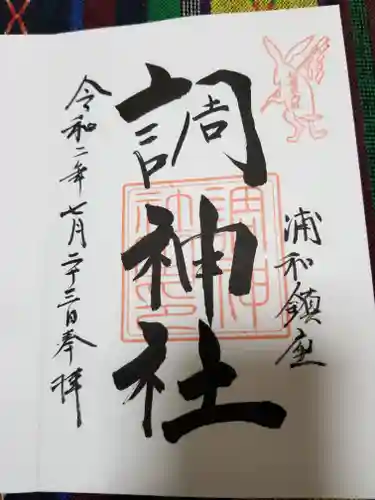 浦和鎮座
調神社
令和二年七月二十三日奉拝